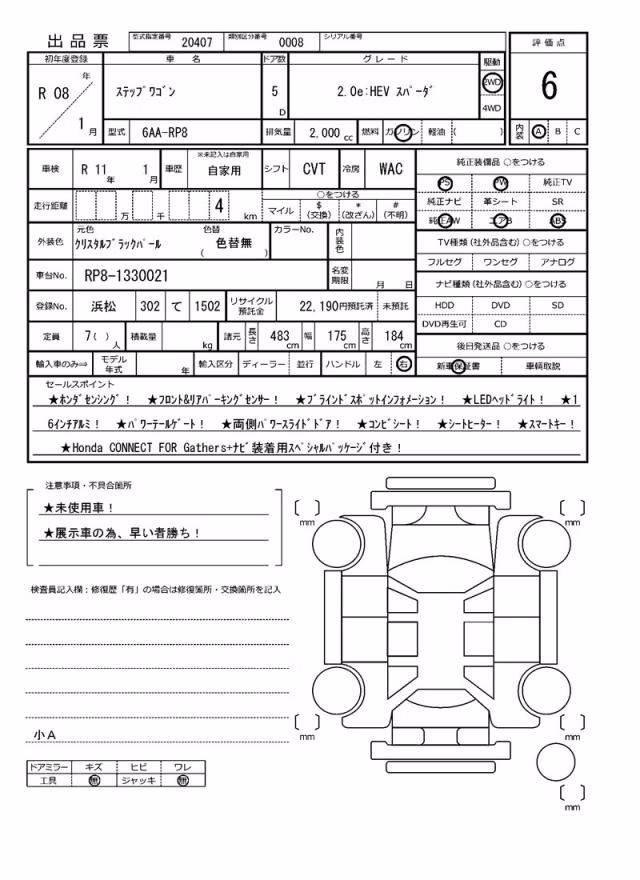 出品票 型式指定番号 20407 類別区分番号 0008 シリアル番号
評価点
初年度登録 車名 ドア数 グレード 駆動
R 08 年 1 月 ｽﾃｯﾌﾟﾜｺﾞﾝ 5 D 2.0e:HEV ｽﾊﾟｰﾀﾞ 2WD 4WD
6
型式 6AA-RP8 排気量 2,000 cc 燃料 ガソリン 軽油 ( )
内装 A B C
車検 R 11 年 1 月 車歴 ※未記入は自家用 自家用 シフト CVT 冷房 WAC
純正装備品 ○をつける
PS PW 純正TV
純正ナビ 革シート SR
純正AW エアB ABS
走行距離 万 千 4 km
○をつける
マイル $(交換) *(改ざん) #(不明)
外装色 元色 ｸﾘｽﾀﾙﾌﾞﾗｯｸﾊﾟｰﾙ 色替 ( 色替無 ) カラーNo. 内装色
TV種類 (社外品含む) ○をつける
フルセグ ワンセグ アナログ
車台No. RP8-1330021 名変期限 月 日
ナビ種類 (社外品含む) ○をつける
HDD DVD SD
DVD再生可 CD
登録No. 浜松 302 て 1502 リサイクル預託金 22,190円預託済 未預託
定員 7( ) 人 積載量 kg 諸元 長さ 483 cm 幅 175 cm 高さ 184 cm
後日発送品 ○をつける
新車保証書 車輌取説
輸入車のみ⇨ モデル年式 年 輸入区分 ディーラー 並行 ハンドル 左 右
セールスポイント
★ﾎﾝﾀﾞｾﾝｼﾝｸﾞ！ ★ﾌﾛﾝﾄ&ﾘｱﾊﾟｰｷﾝｸﾞｾﾝｻｰ！ ★ﾌﾞﾗｲﾝﾄﾞｽﾎﾟｯﾄｲﾝﾌｫﾒｰｼｮﾝ！ ★LEDﾍｯﾄﾞﾗｲﾄ！ ★1
6ｲﾝﾁｱﾙﾐ！ ★ﾊﾟﾜｰﾃｰﾙｹﾞｰﾄ！ ★両側ﾊﾟﾜｰｽﾗｲﾄﾞﾄﾞｱ！ ★ｺﾝﾋﾞｼｰﾄ！ ★ｼｰﾄﾋｰﾀｰ！ ★ｽﾏｰﾄｷｰ！
★Honda CONNECT FOR Gathers+ﾅﾋﾞ装着用ｽﾍﾟｼｬﾙﾊﾟｯｹｰｼﾞ付き！
注意事項・不具合箇所
★未使用車！
★展示車の為、早い者勝ち！
検査員記入欄：修復歴「有」の場合は修復箇所・交換箇所を記入
小A
ドアミラー キズ ヒビ ワレ
工具 無 ジャッキ 無
mm mm
mm mm
mm